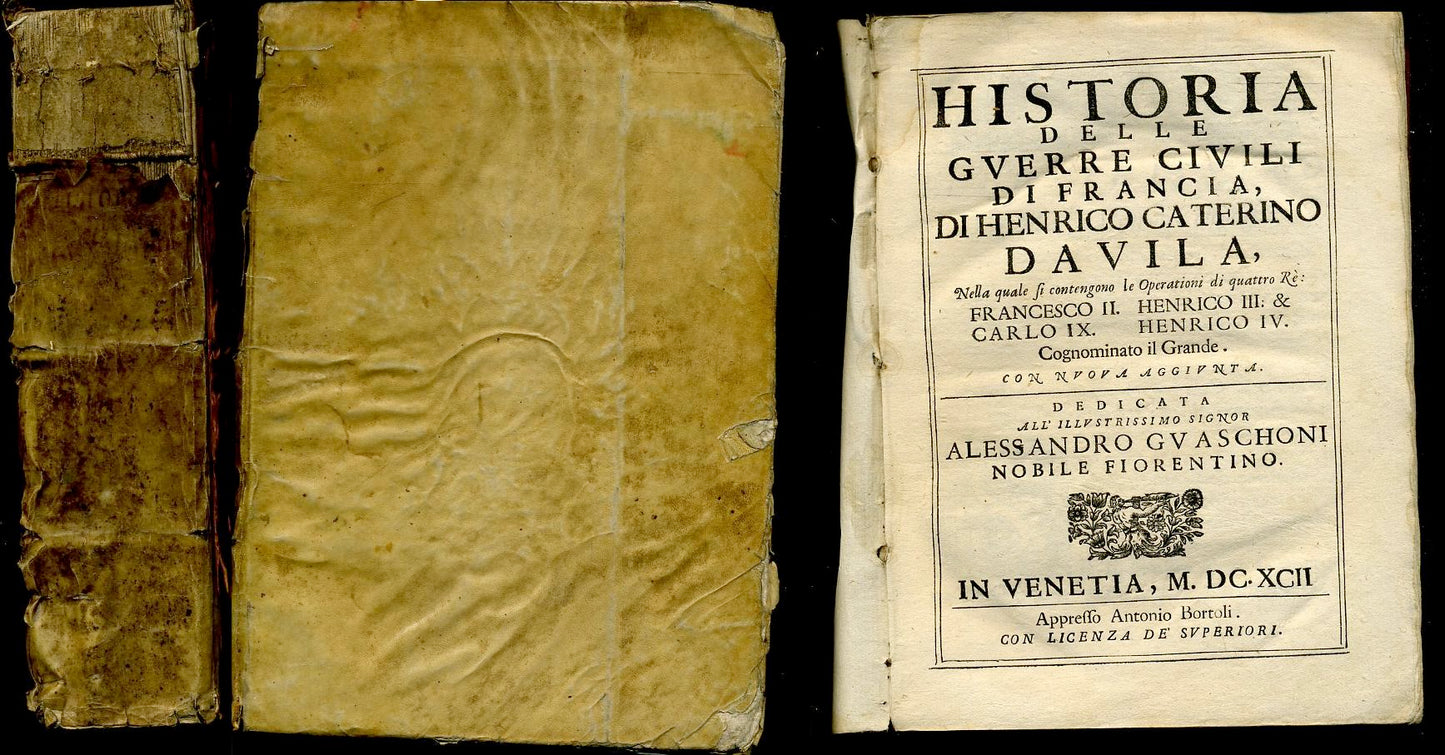 HISTORIA
DELLE
GVERRE CIVILI
DI FRANCIA,
DI HENRICO CATERINO
DAVILA,
Nella quale ſi contengono le Operationi di quattro Rè:
FRANCESCO II. HENRICO III: &
CARLO IX. HENRICO IV.
Cognominato il Grande.
CON NVOVA AGGIVNTA.
DEDICATA
ALL' ILLVSTRISSIMO SIGNOR
ALESSANDRO GVASCHONI
NOBILE FIORENTINO.
IN VENETIA, M. DC. XCII
Appreſſo Antonio Bortoli.
CON LICENZA DE' SVPERIORI.